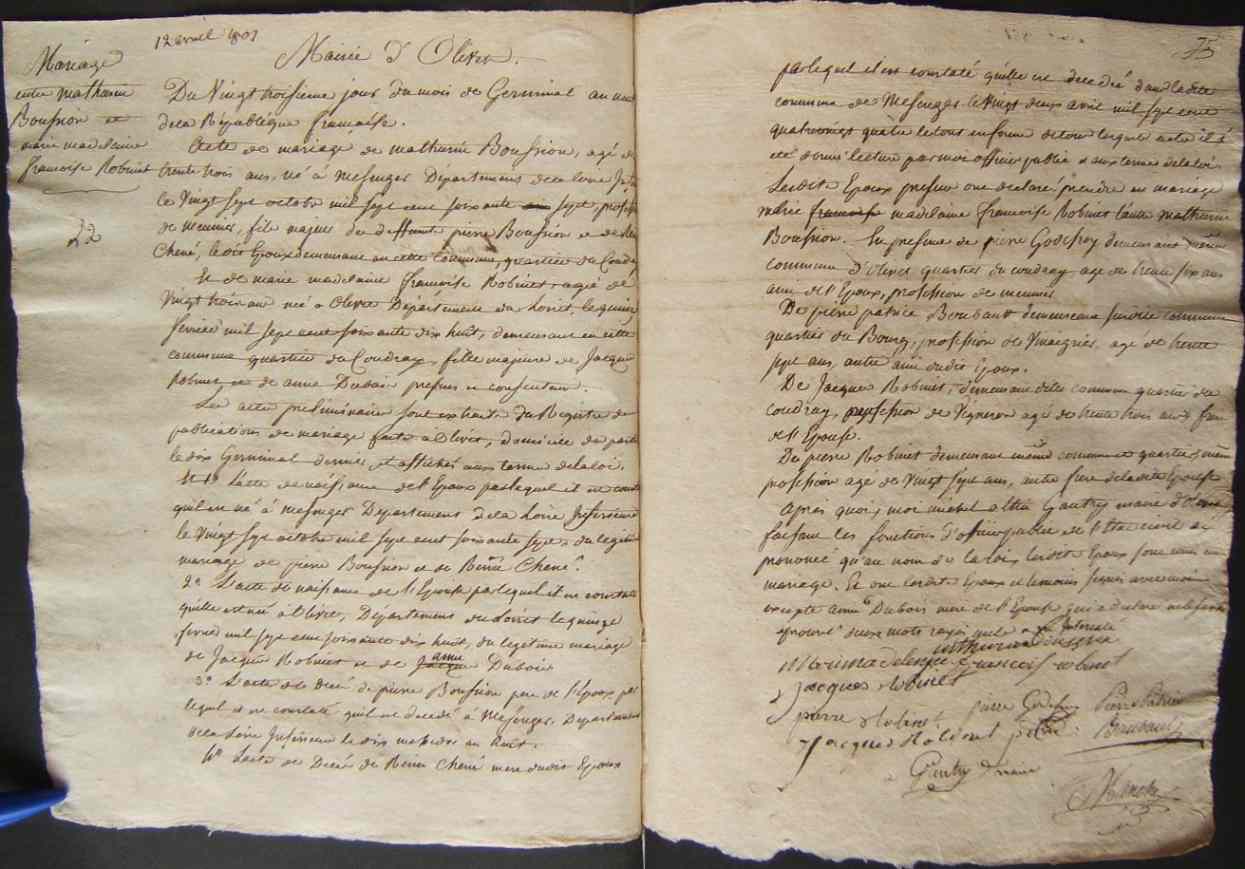 12 avril 1801
Mairie d'Olivet.
Mariage
entre mathurin
Boussion et
marie madelaine
francoise Robinet
22
Du Vingt troisieme jour du mois de Germinal an neuf
de la République française.
Acte de mariage de mathurin Boussion, agé de
trente trois ans, né à Mesanger Département de la Loire Inf
le Vingt sept octobre mil sept cent soixante sept, profession
de meunier, fils majeur du deffunt pierre Boussion et de Renée
Chené, le dit Epoux demeurant en cette commune, quartier du Coudray
Et de marie madelaine françoise Robinet agée de
Vingt trois ans née à Olivet Département du Loiret, le quinze
fevrier mil sept cent soixante dix huit, demeurant en cette
commune quartier du Coudray, fille majeure de Jacques
Robinet et de anne Dubois presens et consentans.
Les actes preliminaires sont extraits du Registre des
publications de mariage faites à Olivet, domicile des parties
le dix Germinal dernier et affichés aux termes de la loi.
1° L'acte de naissance de l'Epoux par lequel il est constaté
qu'il est né à Mesanger Département de la Loire Inferieure
le Vingt sept octobre mil sept cent soixante sept, du legitime
mariage de pierre Boussion et de Renée Chené.
2° L'acte de naissance de l'Epouse par lequel il est constaté
qu'elle est née à Olivet, Département du Loiret le quinze
fevrier mil sept cent soixante dix huit, du legitime mariage
de Jacques Robinet et de anne Dubois
3° L'acte de decé de pierre Boussion pere de l'Epoux par
lequel il est constaté qu'il est decedé à Mesanger, Département
de la Loire Inferieure le dix messidor an huit.
4° L'acte de Decé de Renée Chené mere du dit Epoux
75
par lequel il est constaté qu'elle est decedé dans la dite
commune de Mesanger le Vingt deux avril mil sept cent
quatrevingt quatre le tout en forme de tous lesquels actes il a
été donné lecture par moi officier public aux termes de la loi.
Lesdits Epoux presens ont declaré prendre en mariage
marie madelaine francoise Robinet l'autre mathurin
Boussion. En presence de pierre Godefroy demeurant même
commune d'Olivet quartier du coudray, age de trente six ans
ami de l'Epoux, profession de meunier
De pierre patrice Boubault demeurant susdite commune
quartier du Bourg, profession de Vinaigrier, age de trente
sept ans, autre ami du dit Epoux.
De Jacques Robinet, demeurant dite commune quartier du
coudray, profession de Vigneron agé de trente trois ans frere
de l'Epouse.
De pierre Robinet demeurant même commune et quartier, même
profession age de Vingt sept ans, autre frere de la dite Epouse
Après quoi, moi Gautry maire d'Olivet
faisant les fonctions d'officier public de l'Etat civil ai
prononcé qu'au nom de la loi, lesdits Epoux sont unis en
mariage. Et ont lesdits Epoux et temoins signés avec moi
excepté anne Dubois mere de l'Epouse qui a declaré ne le savoir
approuvé deux mots rayés nuls
mathurin Boussion
Marimadelene francois robinet
Jacques Robinet
pierre Robinet pierre Godefroy Pierre Patrice
Boubault
Jacques Robinet
Gautry maire